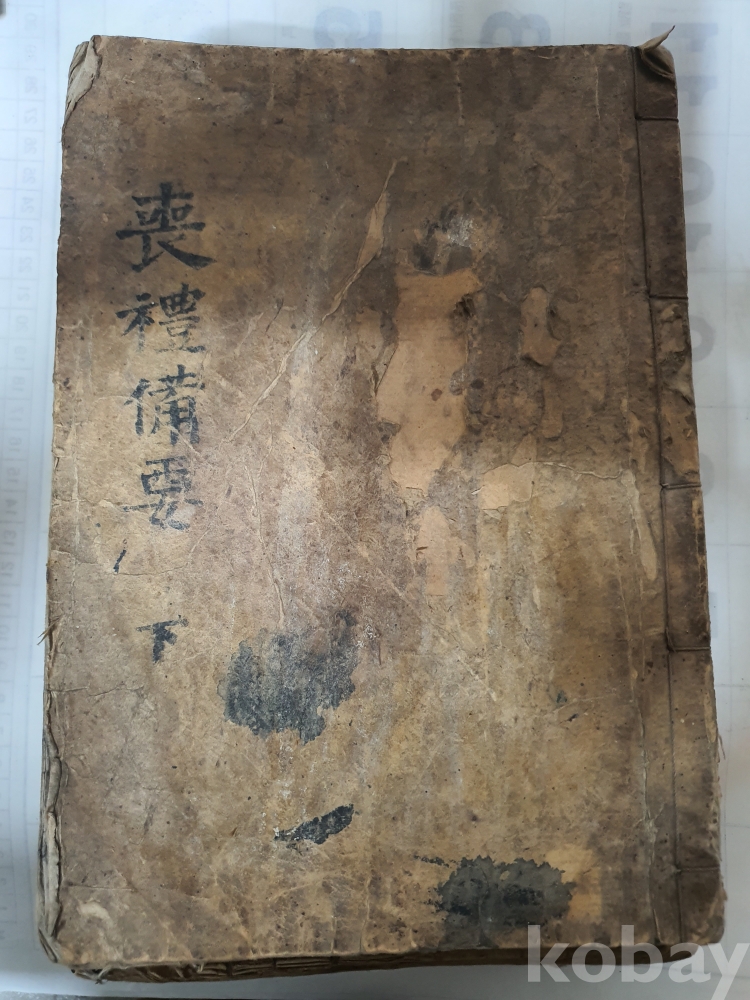 喪禮備要
下
kobay